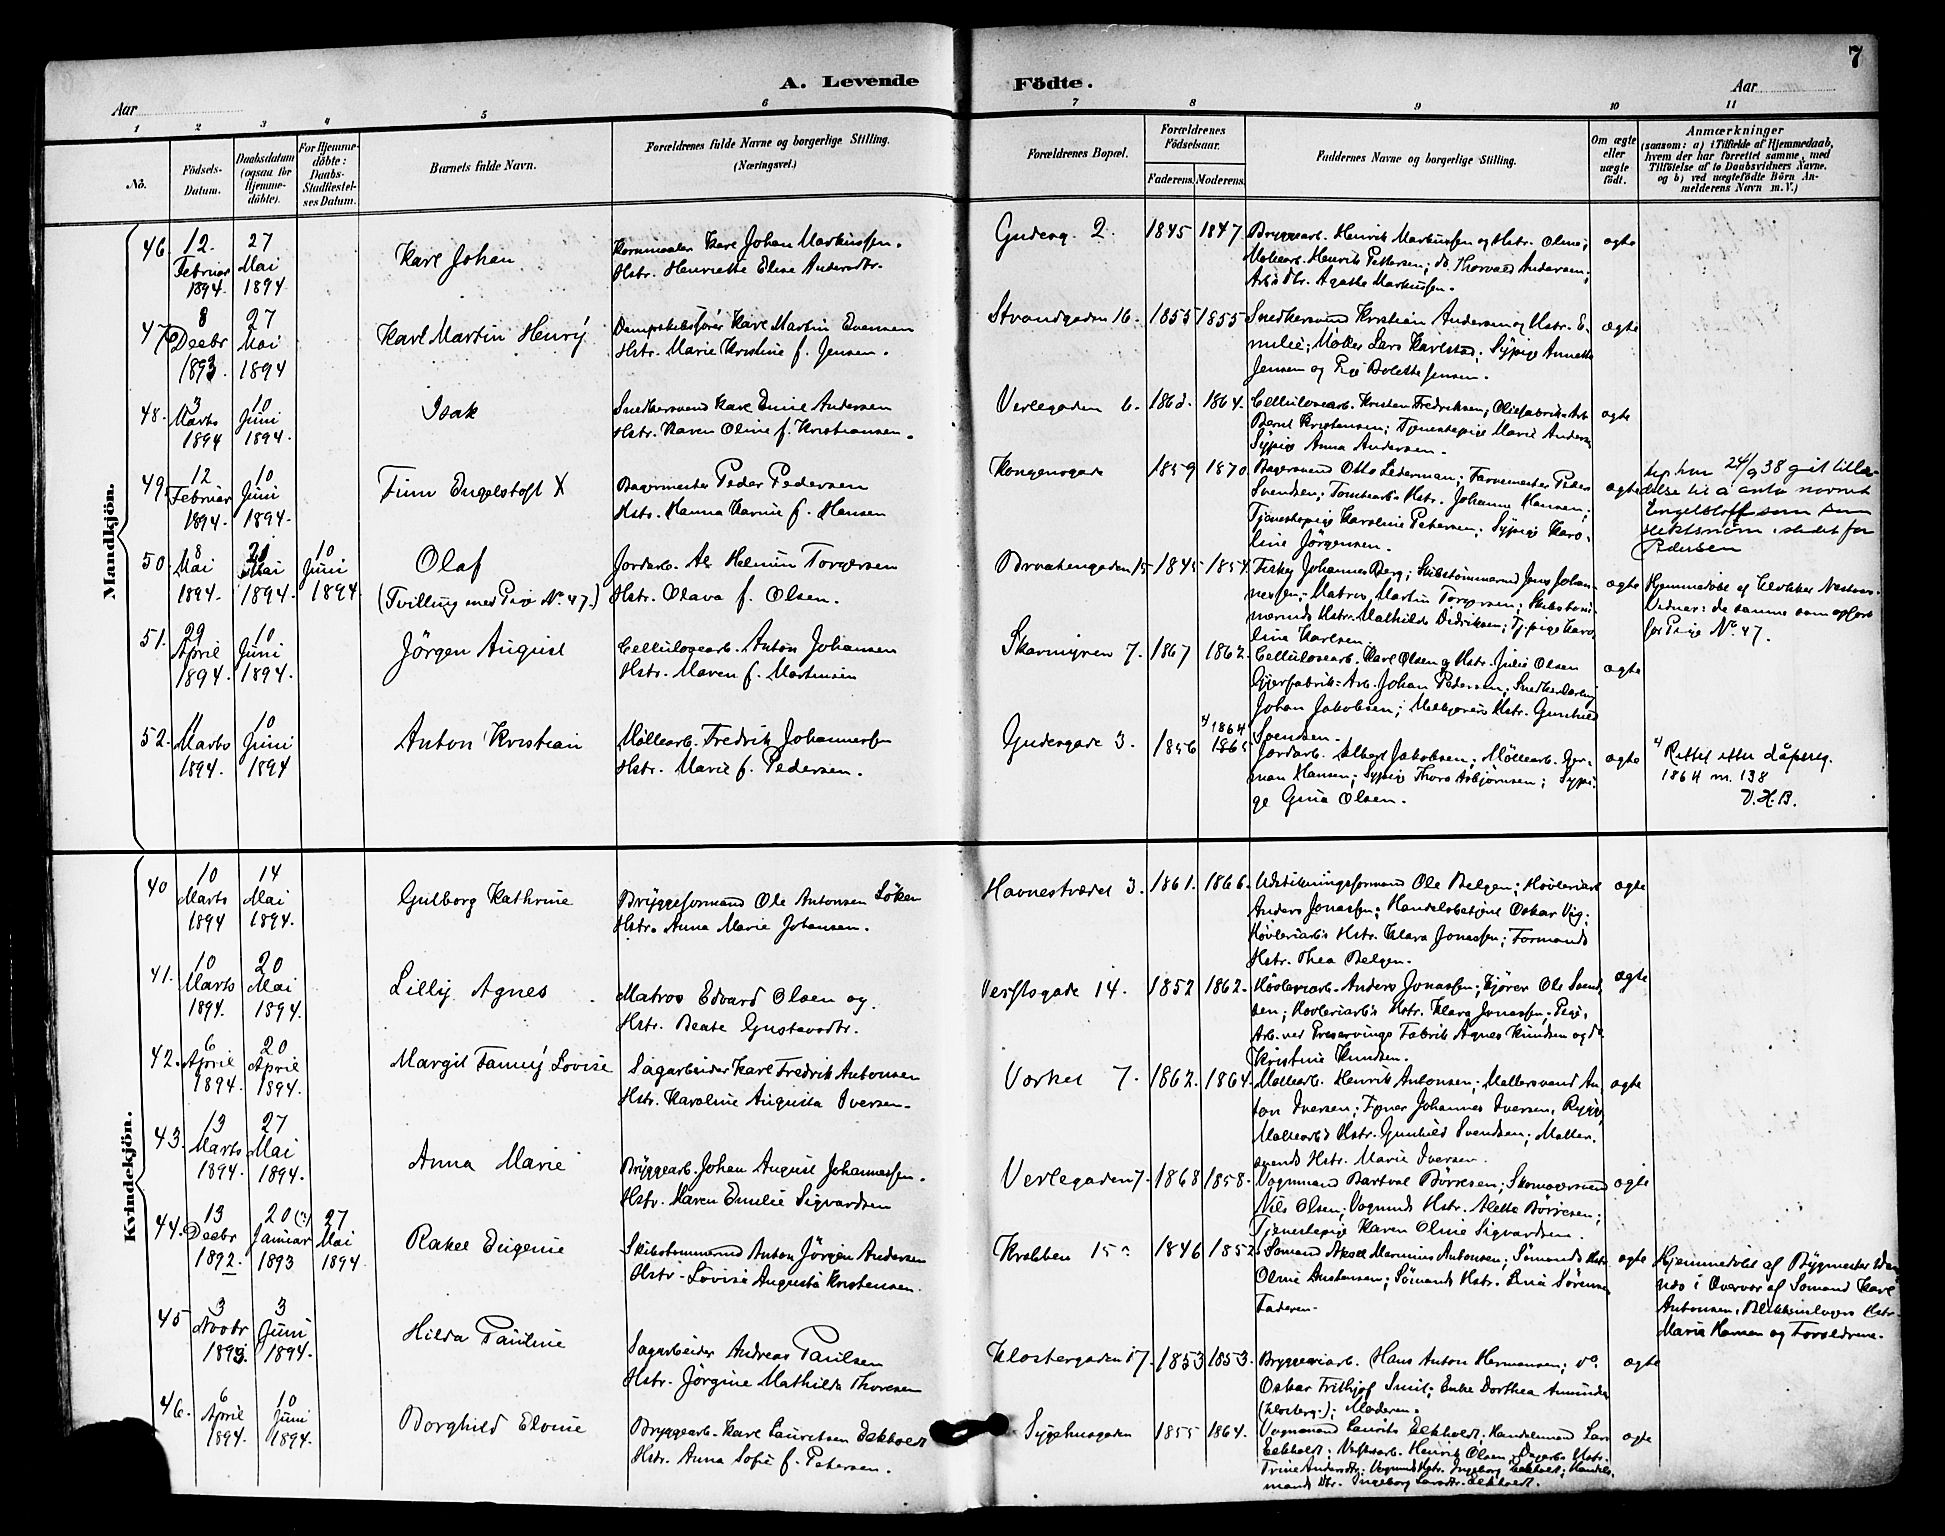 7
A. Levende Födte.
Aar Aar
1 2 3 4 5 6 7 8 9 10 11
No.
Födsels-
Datum.
Daabsdatum
(ogsaa for
Hjemme-
döbte).
For Hjemme-
döbte:
Daabs-
Stadfæstel-
ses Datum.
Barnets fulde Navn.
Forældrenes fulde Navne og borgerlige Stilling.
(Næringsvei.)
Forældrenes Bopæl.
Forældrenes
Födselsaar.
Faderens. Moderens.
Faddernes Navne og borgerlige Stilling.
Om ægte
eller
uægte
født.
Anmærkninger
(saasom: a) i Tilfælde af Hjemmedaab,
hvem der har forrettet samme, med
Tilföielse af to Daabsvidners Navne,
og b) ved uægtefödte Börn An-
melderens Navn m. V.)
Mandkjön.
46. 12. Februar 1894. 27 Mai 1894
Karl Johan
Kornmaaler Karl Johan Markussen.
Hstr. Henriette Elise Andersdtr.
Gudesg. 2. 1845 1847.
Bryggearb. Henrik Markussen og Hstr. Oline;
Møllearb. Henrik Pettersen; do. Thorvald Andersen;
Arb's Dtr. Agathe Markussen.
ægte
47. 8 Decbr 1893. 27 Mai 1894
Karl Martin Henrÿ
Dampskibsfører Karl Martin Evensen
Hstr. Marie Kristine f. Jensen.
Strandgaden 16. 1855 1855
Snedkersvend Kristian Andersen og Hstr. E-
milie; Møller Lars Karlstad; Sÿpige Annette
Jensen og Pige Bolette Jensen.
ægte
48. 3 Marts 1894 10 Juni 1894.
Isak
Snedkersvend Karl Emil Andersen
Hstr. Karen Oline f. Kristiansen.
Verlegaden 6. 1863. 1864.
Cellulosearb. Kristen Fredriksen; Oliefabrik-Arb
Bernt Kristensen; Tjenestepige Marie Anders
Sÿpige Anna Andersen.
ægte
49. 12 Februar 1894. 10 Juni 1894.
Finn Engelstoft X
Bagermester Peder Pedersen
Hstr. Hanna Karine f. Hansen
Kongensgade 1859 1870
Bagersvend Otto Lederman; Farvemester Peder
Svendsen; Tomtearb. Hstr. Johanne Hansen;
Tjenestepige Karoline Petersen; Sÿpige Karo-
line Jörgensen.
ægte
24/9 38 git tilla-
delse til å anta navnet
Engelstoft som sem
slektsnavn istedet for
Pedersen
50. 8 Mai 1894. Mai 1894. 10 Juni 1894
Olaf
(Tvilling med Pige No. 47.)
Jordarb. Helmin Torgersen
Hstr. Olava f. Olsen.
Braatengaden 15 1845 1854.
Fisker Johannes Berg; Skibstömmermd Jens Johan-
nessen; Matros Martin Torgersen; Skibstöm-
mermds Hstr. Mathilde Didriksen; Tj.pige Karo
line Karlsen.
ægte
Hjemmedöbt af Klokker
Vidner: de samme som opført
for Pige No. 47.
51. 29 April 1894. 10 Juni 1894.
Jörgen August
Cellulosearb. Anton Johansen
Hstr. Maren f. Martinsen
Skarmyren 7. 1867 1862.
Cellulosearb. Karl Olsen og Hstr. Julie Olsen
Johan Pedersen; Snedkerlærling
Johan Jakobsen; Hstr. Gunhild
Svendsen.
ægte
52. 11 Marts 1894. 10 Juni 1894
Anton Kristian
Møllearb. Fredrik Johannessen
Hstr. Marie f. Pedersen.
Gudesgade 3. 1856 1864 1865
Jordarb. Albert Jakobsen; Møllearb. Her-
man Hansen; Sÿpige Thora Asbjörnsen; Sÿpi-
ge Gina Olsen.
ægte
Rettet etter dåpsreg.
1864 nr. 138
V.H.B.
Kvindekjön.
40 10 Marts 1894 14 Mai 1894.
Gulborg Kathrine
Brÿggeformand Ole Antonsen Löken
Hstr. Anna Marie Johansen.
Havnestrædet 3. 1861. 1866.
Udstikningsformand Ole Belgen; Høvleriarb
Anders Jonassen; Handelsbetjent Oskar Vig;
Høvleriarb's Hstr. Klara Jonassen; Formands
Hstr. Thea Belgen.
ægte
41. 10 Marts 1894. 20 Mai 1894.
Lilly Agnes
Matros Edvard Olsen og
Hstr. Beate Gustavsdtr.
Verftsgade 14. 1852 1862.
Høvleriarb. Anders Jonassen; Kjører Ole Svend-
sen; Høvleriarb's Hstr. Klara Jonassen; Pige,
Arb. ved Preservings Fabrik Agnes Knudsen og do
Kristine Knudsen.
ægte
42. 6 April 1894. 20 April 1894.
Margit Fannÿ Lovise
Sagarbeider Karl Fredrik Antonsen
Hstr. Karoline Augusta Iversen.
Vorket 7. 1862. 1864.
Møllearb. Henrik Antonsen; Møllersvend An-
ton Iversen; Johannes Iversen,
Møllearb's Hstr. Gunhild Svendsen; Møller-
svends Hstr. Marie Iversen.
ægte
43. 13 Marts 1894. 27 Mai 1894.
Anna Marie
Brÿggearb. Johan August Johannessen.
Hstr. Maren Emilie Sigvardsen
Verlegaden 7. 1868 1858.
Vognmand Bartval Börresen; Skomagersvend
Nils Olsen; Vognmds Hstr. Alette Börresen;
Tjenestepige Karen Oline Sigvardsen.
ægte
44. 13 Decbr 1892. 20 (?) Januar 1893 27 Mai 1894.
Rakel Eugenie
Skibstømmermd Anton Jörgen Andersen
Hstr. Lovise Augusta Kristensen.
Krabben 15 a 1846 1852.
Sömand Aksel Marinius Antonsen; Sömands Hstr.
Oline Antonsen; Sömands Hstr. Sörensen
Faderen.
ægte
Hjemmedöbt af Bygmester
i Overvær af Sömand Karl
Antonsen, Blikkenslagers Hstr.
Marie Hansen og Forældrene.
45 3 Novbr 1893. 3 Juni 1894.
Hilda Pauline
Sagarbeider Andreas Paulsen
Hstr. Jörgine Mathilde Thoresen
Klostergaden 17. 1853 1853.
Bryggeriarb. Hans Anton Hermansen; do.
Oskar Frithjof Smit; Enke Dorthea Amundsen
(Klosterg.); Moderen.
ægte
46. 6 April 1894. 10 Juni 1894.
Borghild Elovie
Bryggearb. Karl Lauritsen Eekholdt
Hstr. Anna Sofie f. Petersen.
Sygehusgaden 1855 1864.
Vognmand Laurits Eekholdt; Handelsmand Lars
Eekholdt; Verftsarb. Henrik Olsen; Dagarbs Hstr.
Trine Andersdtr; Vognmds Hstr. Ingeborg Eekholdt; Handels-
mands Dtr. Ingeborg Larsdtr. Eekholdt.
ægte